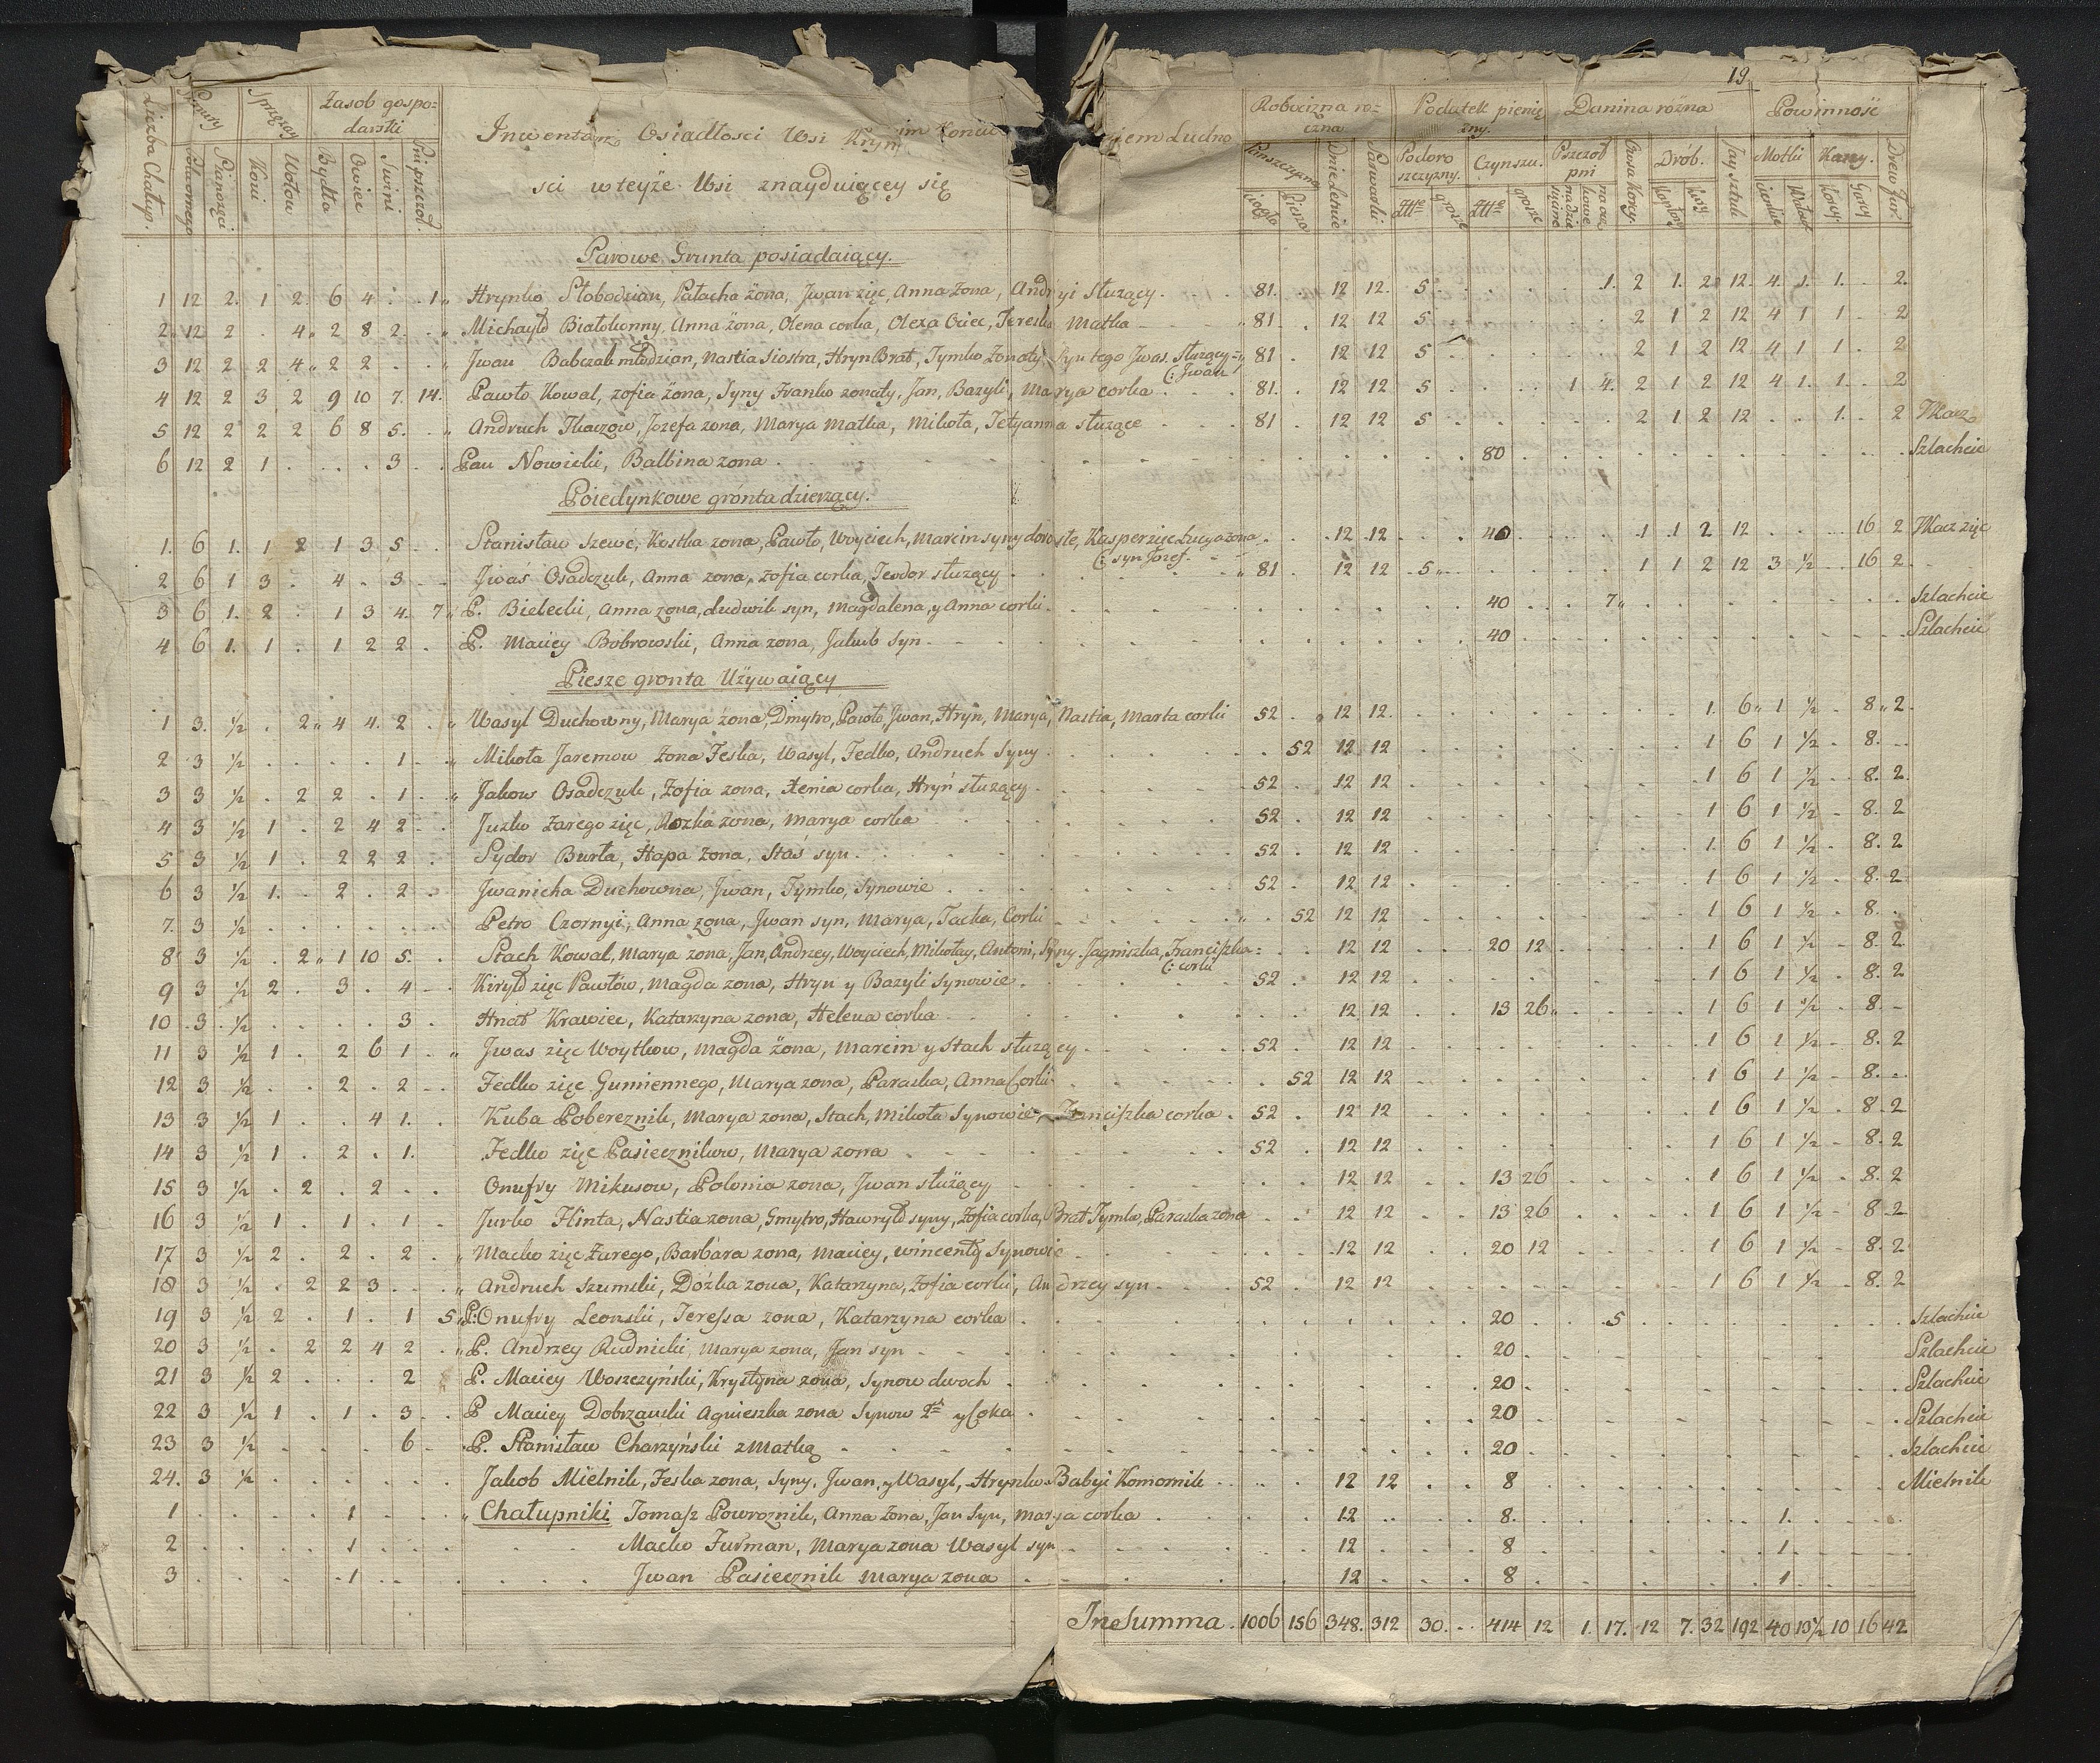 19
Liczba Chałup.
Sprzęzay
Koni
Wołow
Zasob gospodarski
Bydła
Owiec
Swini
Pni pszczoł.
Inwentarz Osiadłosci Wsi
sci w teyże Wsi znayduiącey się
Robocizna roczna
Panszczyzna
ciągła
Piesza
Dnie Letnie
Podatek pienięzny.
Podoroszczyzny.
Czynszu.
Danina rożna
Drób.
Jay sztuk
Powinnosć
Motki
Parowe Grunta posiadaiący.
1 12 2. 1 2 6 4 . 1 Hrynko Słobodzian, Pałacha żona, Jwan zięc, Anna żona, Andryi służący 81. 12 12. 5 1. 2 1. 2 12. 4. 1. 1. 2.
2 12 2 . 4 2 8 2 Michayło Białokonny, Anna żona, Olena corka, Olexa Ociec, Tereska Matka 81 12 12 5 2 1 2 12 4 1 1 2
3 12 2 2 4 2 2 Jwan Babczak młodzian, Nastia Siostra, Hryn Brat, Tymko żonaty, Syn tego Jwas. służący 81 12 12 5 2 1 2 12 4 1 1 2
(: Jwan
4 12 2 3 2 9 10 7. 14. Pawło Kowal, zofia żona, Syny Franko zonaty, Jan, Bazyli, Marya corka 81. 12 12 5 1 4. 2 1 2 12 4 1. 1. 2
5 12 2 2 2 6 8 5. Andruch Tkaczow, Jozefa zona, Marya Matka, Mikoła, Tetyanna służące 81 12 12 5 2 1 2 12 1. 2 Tkacz
6 12 2 1 . . . 3 Pan Nowicki, Balbina zona 80 Szlachcic
Poiedynkowe grónta dzierzący.
1. 6 1. 1 2 1 3 5 Stanisław Szewc, Kostka zona, Pawło, Woyciech, Marcin syny dorosłe, Kasper zięc Łucya zona 12 12 40 1 1 2 12 16 2 Tkacz zięc
(: syn Jozef.
2 6 1 3 . 4 . 3 Jwaś Osadczuk, Anna zona, Zofia corka, Teodor służący 81 12 12 5 1 1 2 12 3 ½ 16 2
3 6 1. 2 . 1 3 4. 7 P. Bielecki, Anna zona, Ludwik syn, Magdalena, y Anna corki 40 7 Szlachcic
4 6 1. 1 . 1 2 2 P. Maciey Bobrowski, Anna zona, Jakub Syn 40 Szlachcic
Piesze gronta Używaiący
1 3. ½ . 2 4 4. 2 Wasyl Duchowny, Marya żona, Dmytro, Pawło, Jwan, Hryn, Marya, Nastia, Marta corki 52 12 12. 1. 6 1 ½ 8 2
2 3 ½ . . . . 1 Mikoła Jaremow żona Feska, Wasyl, Fedko, Andruch Syny 52 12 12 1 6 1 ½ 8.
3 3 ½ . 2 2 . 1 Jakow Osadczuk, Zofia zona, Xenia corka, Hryń służący 52 12 12 1 6 1 ½ 8. 2
4 3 ½ 1 . 2 4 2 Juzko Zarego zięc, Rozka zona, Marya corka 52 12 12 1 6 1 ½ 8. 2
5 3 ½ 1 . 2 2 2 Sydor Burła, Hapa żona, Staś syn 52 12 12 1. 6 1 ½ 8. 2
6 3 ½ 1. . 2 . 2 Jwanicha Duchowna, Jwan, Tymko, Synowie 52 12 12 1 6 1 ½ 8. 2
7. 3 ½ Petro Czornyi, Anna zona, Jwan syn, Marya, Tacka, Corki 52 12 12 1 6 1 ½ 8.
8 3 ½ . 2 1 10 5. Stach Kowal, Marya zona, Jan, Andrzey, Woyciech, Mikołay, Antoni, Syny. Jagniszka, Franciszka 12 12 20 12 1 6 1 ½ 8. 2
(: corki
9 3 ½ 2 . 3 . 4 Kiryło zięc Pawłów, Magda zona, Hryn y Bazyli Synowie 52 12 12 1 6 1 ½ 8. 2
10 3 ½ . . . . 3 Hnat Krawiec, Katarzyna zona, Helena corka 12 12 13 26 1 6 1 ½ 8.
11 3 ½ 1 . 2 6 1 Jwas zięc Woytkow, Magda żona, Marcin y Stach służący 52 12 12 1 6 1 ½ 8. 2
12 3 ½ . . 2 . 2 Fedko zięc Gumiennego, Marya zona, Paraska, Anna Corki 52 12 12 1 6 1 ½ 8.
13 3 ½ 1 . . 4 1. Kuba Pobereznik, Marya zona, Stach, Mikoła Synowie, Franciszka corka 52 12 12 1 6 1 ½ 8. 2
14 3 ½ 1 . 2 . 1. Fedko zięc Pasiecznikow, Marya zona 52 12 12 1 6 1 ½ 8. 2
15 3 ½ . 2 . 2 Onufry Mikusow, Polonia zona, Jwan służący 12 12 13 26 1 6 1 ½ 8. 2
16 3 ½ 1 . 1 . 1 Jurko Hlinta, Nastia zona, Gmytro, Hawryło syny, Zofia corka, Brat Tymko, Paraska zona 12 12 13 26 1 6 1 ½ 8 2
17 3 ½ 2 . 2 . 2 Macko zięc Zarego, Barbara zona, Maciey, Wincenty Synowie 12 12 20 12 1 6 1 ½ 8. 2
18 3 ½ . 2 2 3 Andruch Szumski, Dózka zona, Katarzyna, Zofia corki, Andrzey syn 52 12 12 1 6 1 ½ 8. 2
19 3 ½ 2 . 1 . 1 5 P: Onufry Leonski, Teressa zona, Katarzyna corka 20 5 Szlachcic
20 3 ½ . 2 2 4 2 P. Andrzey Rudnicki, Marya zona, Jan syn 20 Szlachcic
21 3 ½ 2 . . . 2 P. Maciey Woszczyński, Krystyna zona, Synow dwoch 20 Szlachcic
22 3 ½ 1 . 1 . 3 P Maciey Dobrzanski Agnieszka zona Synow 2 y Coka 20 Szlachcic
23 3 ½ . . . . 6 P. Stanisław Charzyński z Matką 20 Szlachcic
24. 3 ½ Jakob Mielnik, Feska zona, Syny, Jwan, y Wasyl, Hrynko Babyi Komornik 12 12 8 Mielnik
1 1 Chałupniki Tomasz Powroznik, Anna żona, Jan Syn, Marya corka 12 8. 1.
2 1 Macko Furman, Marya zona Wasyl syn 12 8 1
3 1 Jwan Pasiecznik Marya zona 12 8 1
In Summa. 1006 156 348. 312 30. 414 12 1. 17. 12 7. 32 192 40 19½ 10 16 42